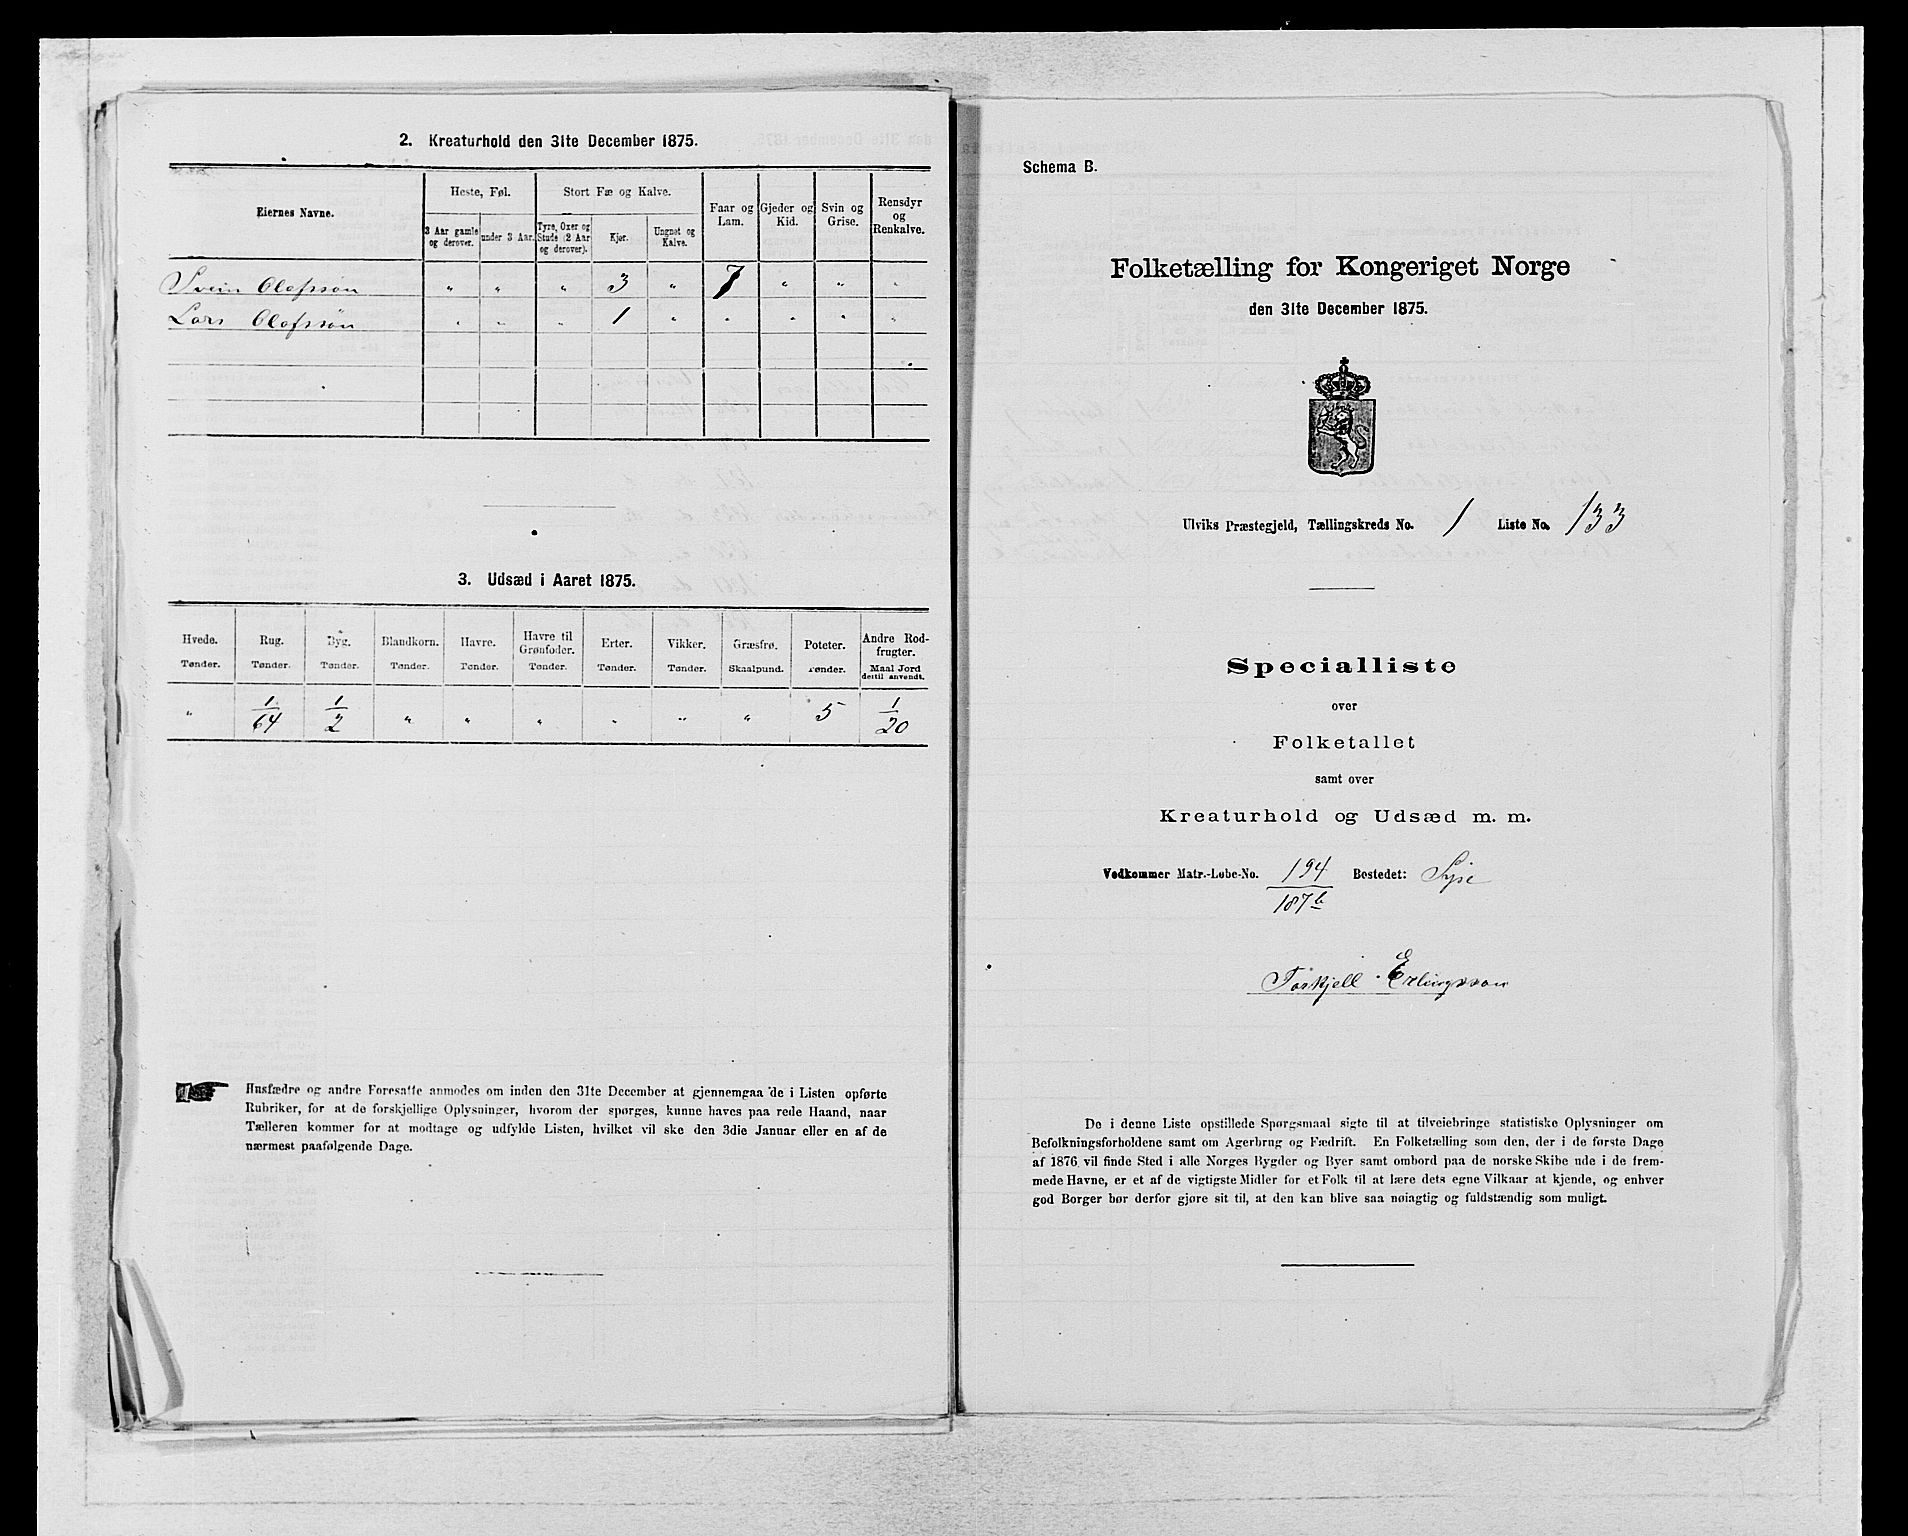 2. Kreaturhold den 31te December 1875.
Eiernes Navne.
Heste, Føl.
Stort Fæ og Kalve.
Faar og Lam.
Gjeder og Kid.
Svin og Grise.
Rensdyr og Renkalve.
3 Aar gamle og derover.
under 3 Aar.
Tyre, Oxer og Stude (2 Aar og derover).
Kjør.
Ungnet og Kalve.
Svein Olafssøn " " " 3 " 7 " " "
Lars Olafssøn " " " 1 " " " " "
3. Udsæd i Aaret 1875.
Hvede. Rug. Byg. Blandkorn. Havre. Havre til Grønfoder. Erter. Vikker. Græsfrø. Poteter. Andre Rodfrugter.
Tønder. Tønder. Tønder. Tønder. Tønder. Tønder. Tønder. Tønder. Skaalpund. Tønder. Maal Jord dertil anvendt.
" 1/64 1/2 " " " " " " 5 1/20
Husfædre og andre Foresatte anmodes om inden den 31te December at gjennemgaa de i Listen opførte
Rubriker, for at de forskjellige Oplysninger, hvorom der spørges, kunne haves paa rede Haand, naar
Tælleren kommer for at modtage og udfylde Listen, hvilket vil ske den 3die Januar eller en af de
nærmest paafølgende Dage.
Schema B.
Folketælling for Kongeriget Norge
den 31te December 1875.
Ulviks Præstegjeld, Tællingskreds No. 1 Liste No. 133
Specialliste
over
Folketallet
samt over
Kreaturhold og Udsæd m. m.
Vedkommer Matr.-Løbe-No. 194 Bostedet: Syse
187b
Torkjell Erlingsson
De i denne Liste opstillede Spørgsmaal sigte til at tilveiebringe statistiske Oplysninger om
Befolkningsforholdene samt om Agerbrug og Fædrift. En Folketælling som den, der i de første Dage
af 1876 vil finde Sted i alle Norges Bygder og Byer samt ombord paa de norske Skibe ude i de frem-
mede Havne, er et af de vigtigste Midler for et Folk til at lære dets egne Vilkaar at kjende, og enhver
god Borger bør derfor gjøre sit til, at den kan blive saa nøiagtig og fuldstændig som muligt.